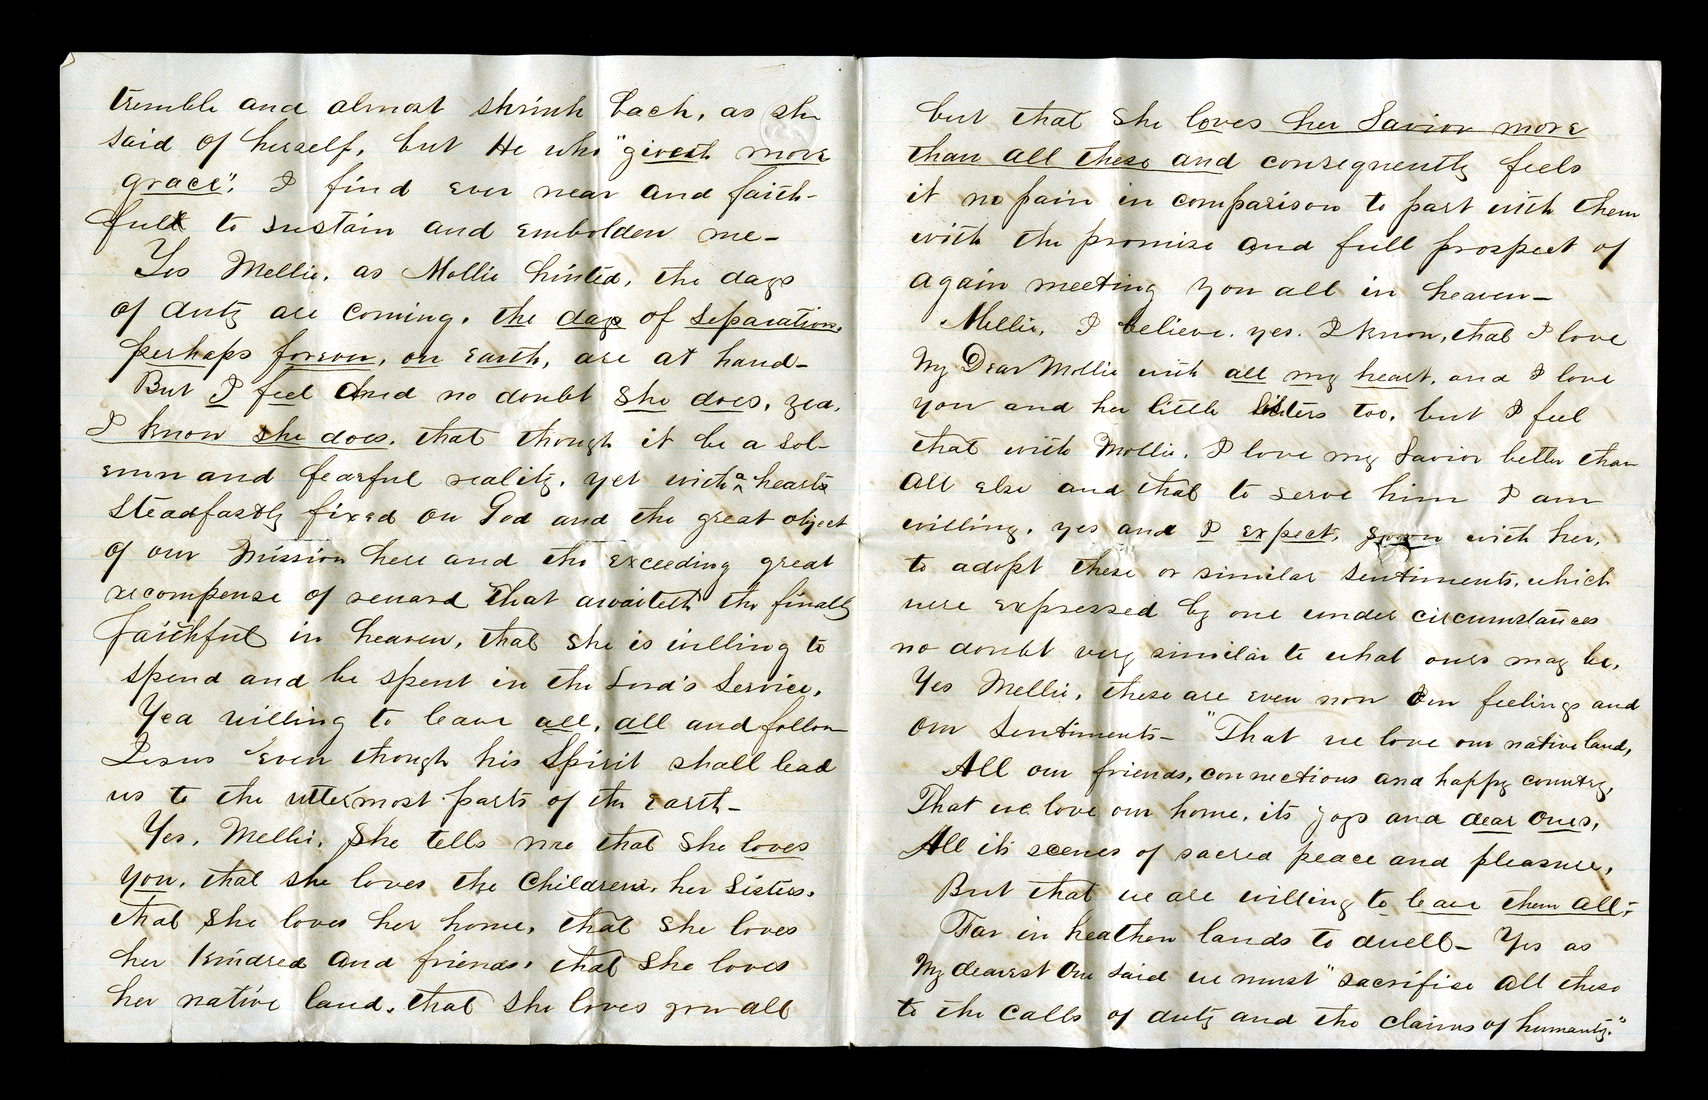 tremble and almost shrink back, as she
said of herself, but He who "giveth more
grace", I find ever near and faith-
full to sustain and embolden me-
Yes Mellie, as Mollie hinted, the days
of duty are coming, the days of separation,
perhaps forever, on earth, are at hand-
But I feel and no doubt she does, yea,
I know she does, that though it be a sol-
emn and fearful reality, yet with a hearts
steadfastly fixed on God and the great object
of our mission here and the exceeding great
recompense of reward that awaiteth the finally
faithful in heaven, that she is willing to
spend and be spent in the Lord's service,
Yea willing to leave all, all and follow
Jesus even though his Spirit shall lead
us to the uttermost parts of the earth-
Yes, Mellie, she tells me that she loves
you, that she loves the children, her sisters,
that she loves her home, that she loves
her kindred and friends, that she loves
her native land, that she loves you all
but that she loves her Savior more
than all these and consequently feels
it no pain in comparison to part with them
with the promise and full prospect of
again meeting you all in heaven-
Mellie, I believe, yes, I know, that I love
My Dear Mollie with all my heart, and I love
you and her little sisters too, but I feel
that with Mollie, I love my Savior better than
all else and that to serve him I am
willing, yes and I expect, soon with her,
to adopt these or similar sentiments, which
were expressed by one under circumstances
no doubt very similar to what ours may be.
Yes Mellie, these are even now our feelings and
our sentiments- "That we love our native land,
All our friends, connections and happy country,
That we love our home, its joys and dear ones,
All its scenes of sacred peace and pleasure,
But that we are willing to leave them all;
Far in heathen lands to dwell- Yes as
My dearest One said we must "sacrifise all these
to the calls of duty and the claims of humanity."